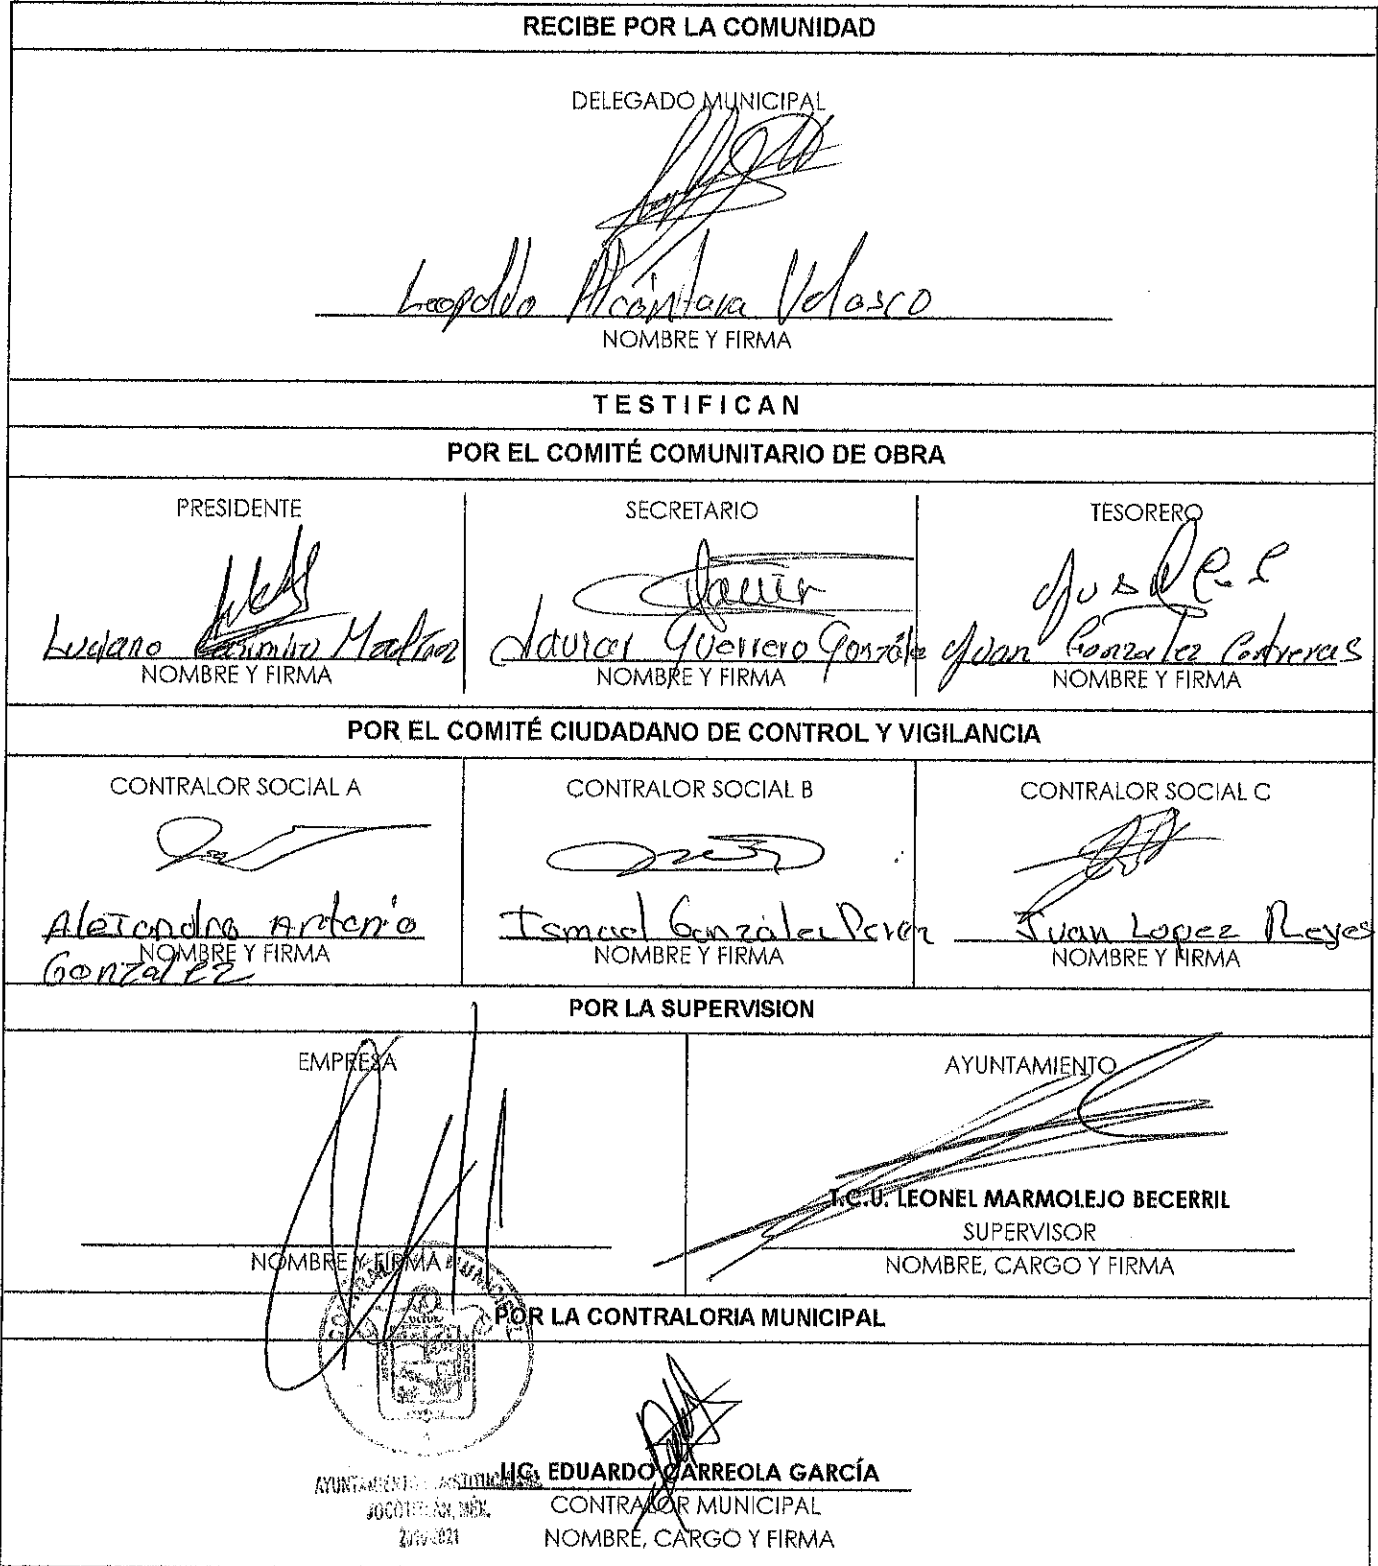 RECIBE POR LA COMUNIDAD
DELEGADO MUNICIPAL
Leopoldo Alcántara Velasco
NOMBRE Y FIRMA
TESTIFICAN
POR EL COMITÉ COMUNITARIO DE OBRA
PRESIDENTE
Luciano Casimiro
NOMBRE Y FIRMA
SECRETARIO
Javier
Guerrero González
NOMBRE Y FIRMA
TESORERO
Juan González Contreras
NOMBRE Y FIRMA
POR EL COMITÉ CIUDADANO DE CONTROL Y VIGILANCIA
CONTRALOR SOCIAL A
Alejandro Antonio
NOMBRE Y FIRMA
Gonzalez
CONTRALOR SOCIAL B
Ismael González Perez
NOMBRE Y FIRMA
CONTRALOR SOCIAL C
Juan Lopez Reyes
NOMBRE Y FIRMA
POR LA SUPERVISION
EMPRESA
NOMBRE Y FIRMA
AYUNTAMIENTO
T.C.U. LEONEL MARMOLEJO BECERRIL
SUPERVISOR
NOMBRE, CARGO Y FIRMA
POR LA CONTRALORIA MUNICIPAL
CONTRALORIA MUNICIPAL
AYUNTAMIENTO CONSTITUCIONAL
JOCOTITLÁN, MÉX.
2019-2021
LIC. EDUARDO CARREOLA GARCÍA
CONTRALOR MUNICIPAL
NOMBRE, CARGO Y FIRMA